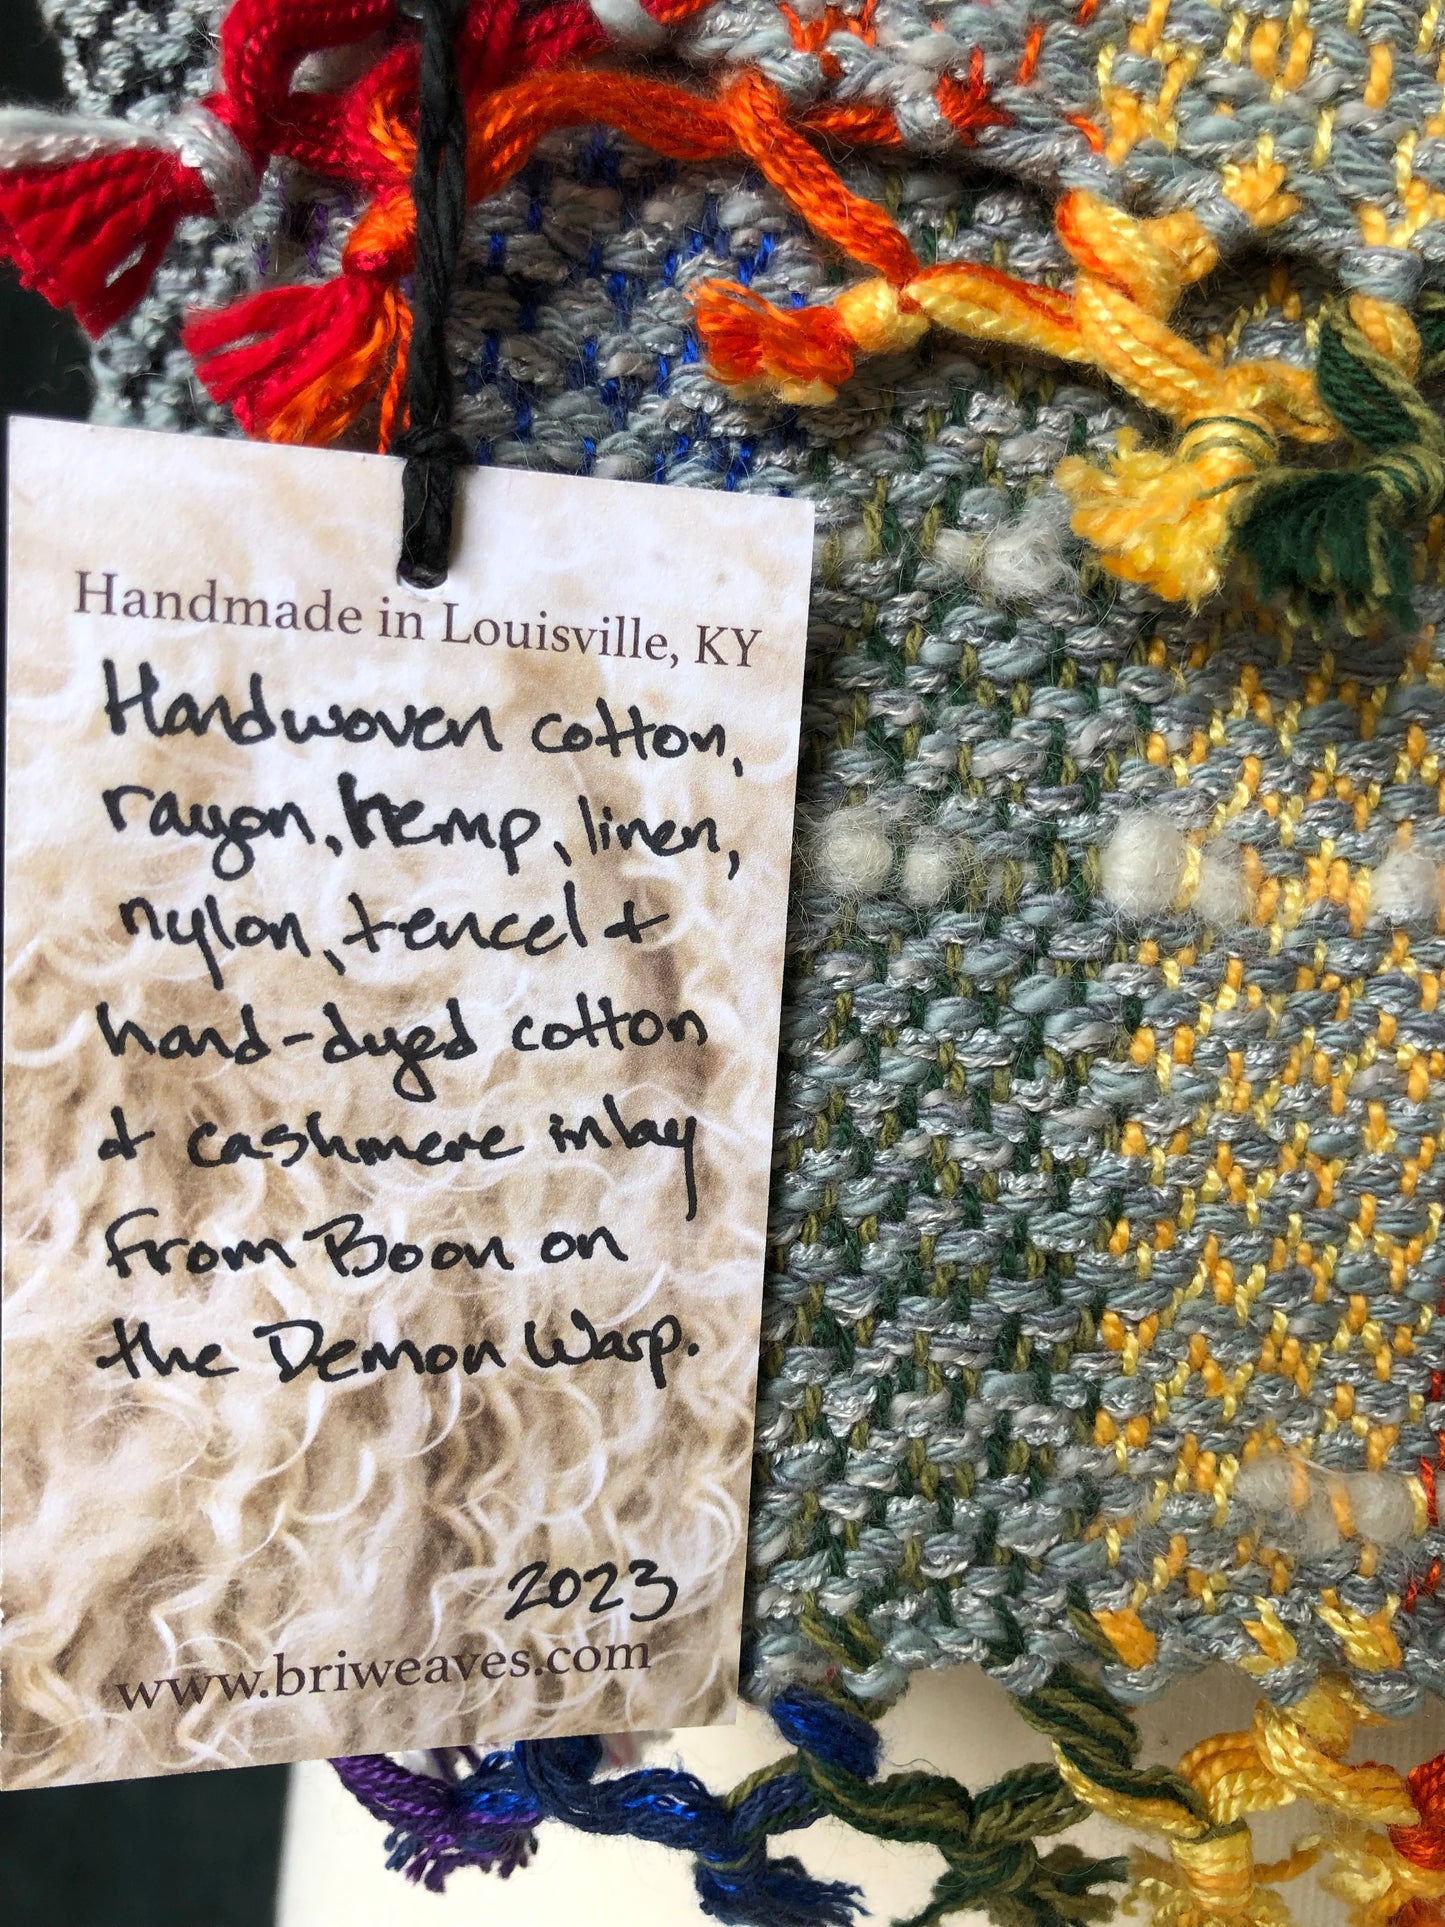 Handmade in Louisville, KY
Handwoven cotton,
rayon, hemp, linen,
nylon, tencel +
hand-dyed cotton
+ cashmere inlay
from Boon on
the Demon Warp.
2023
www.briweaves.com